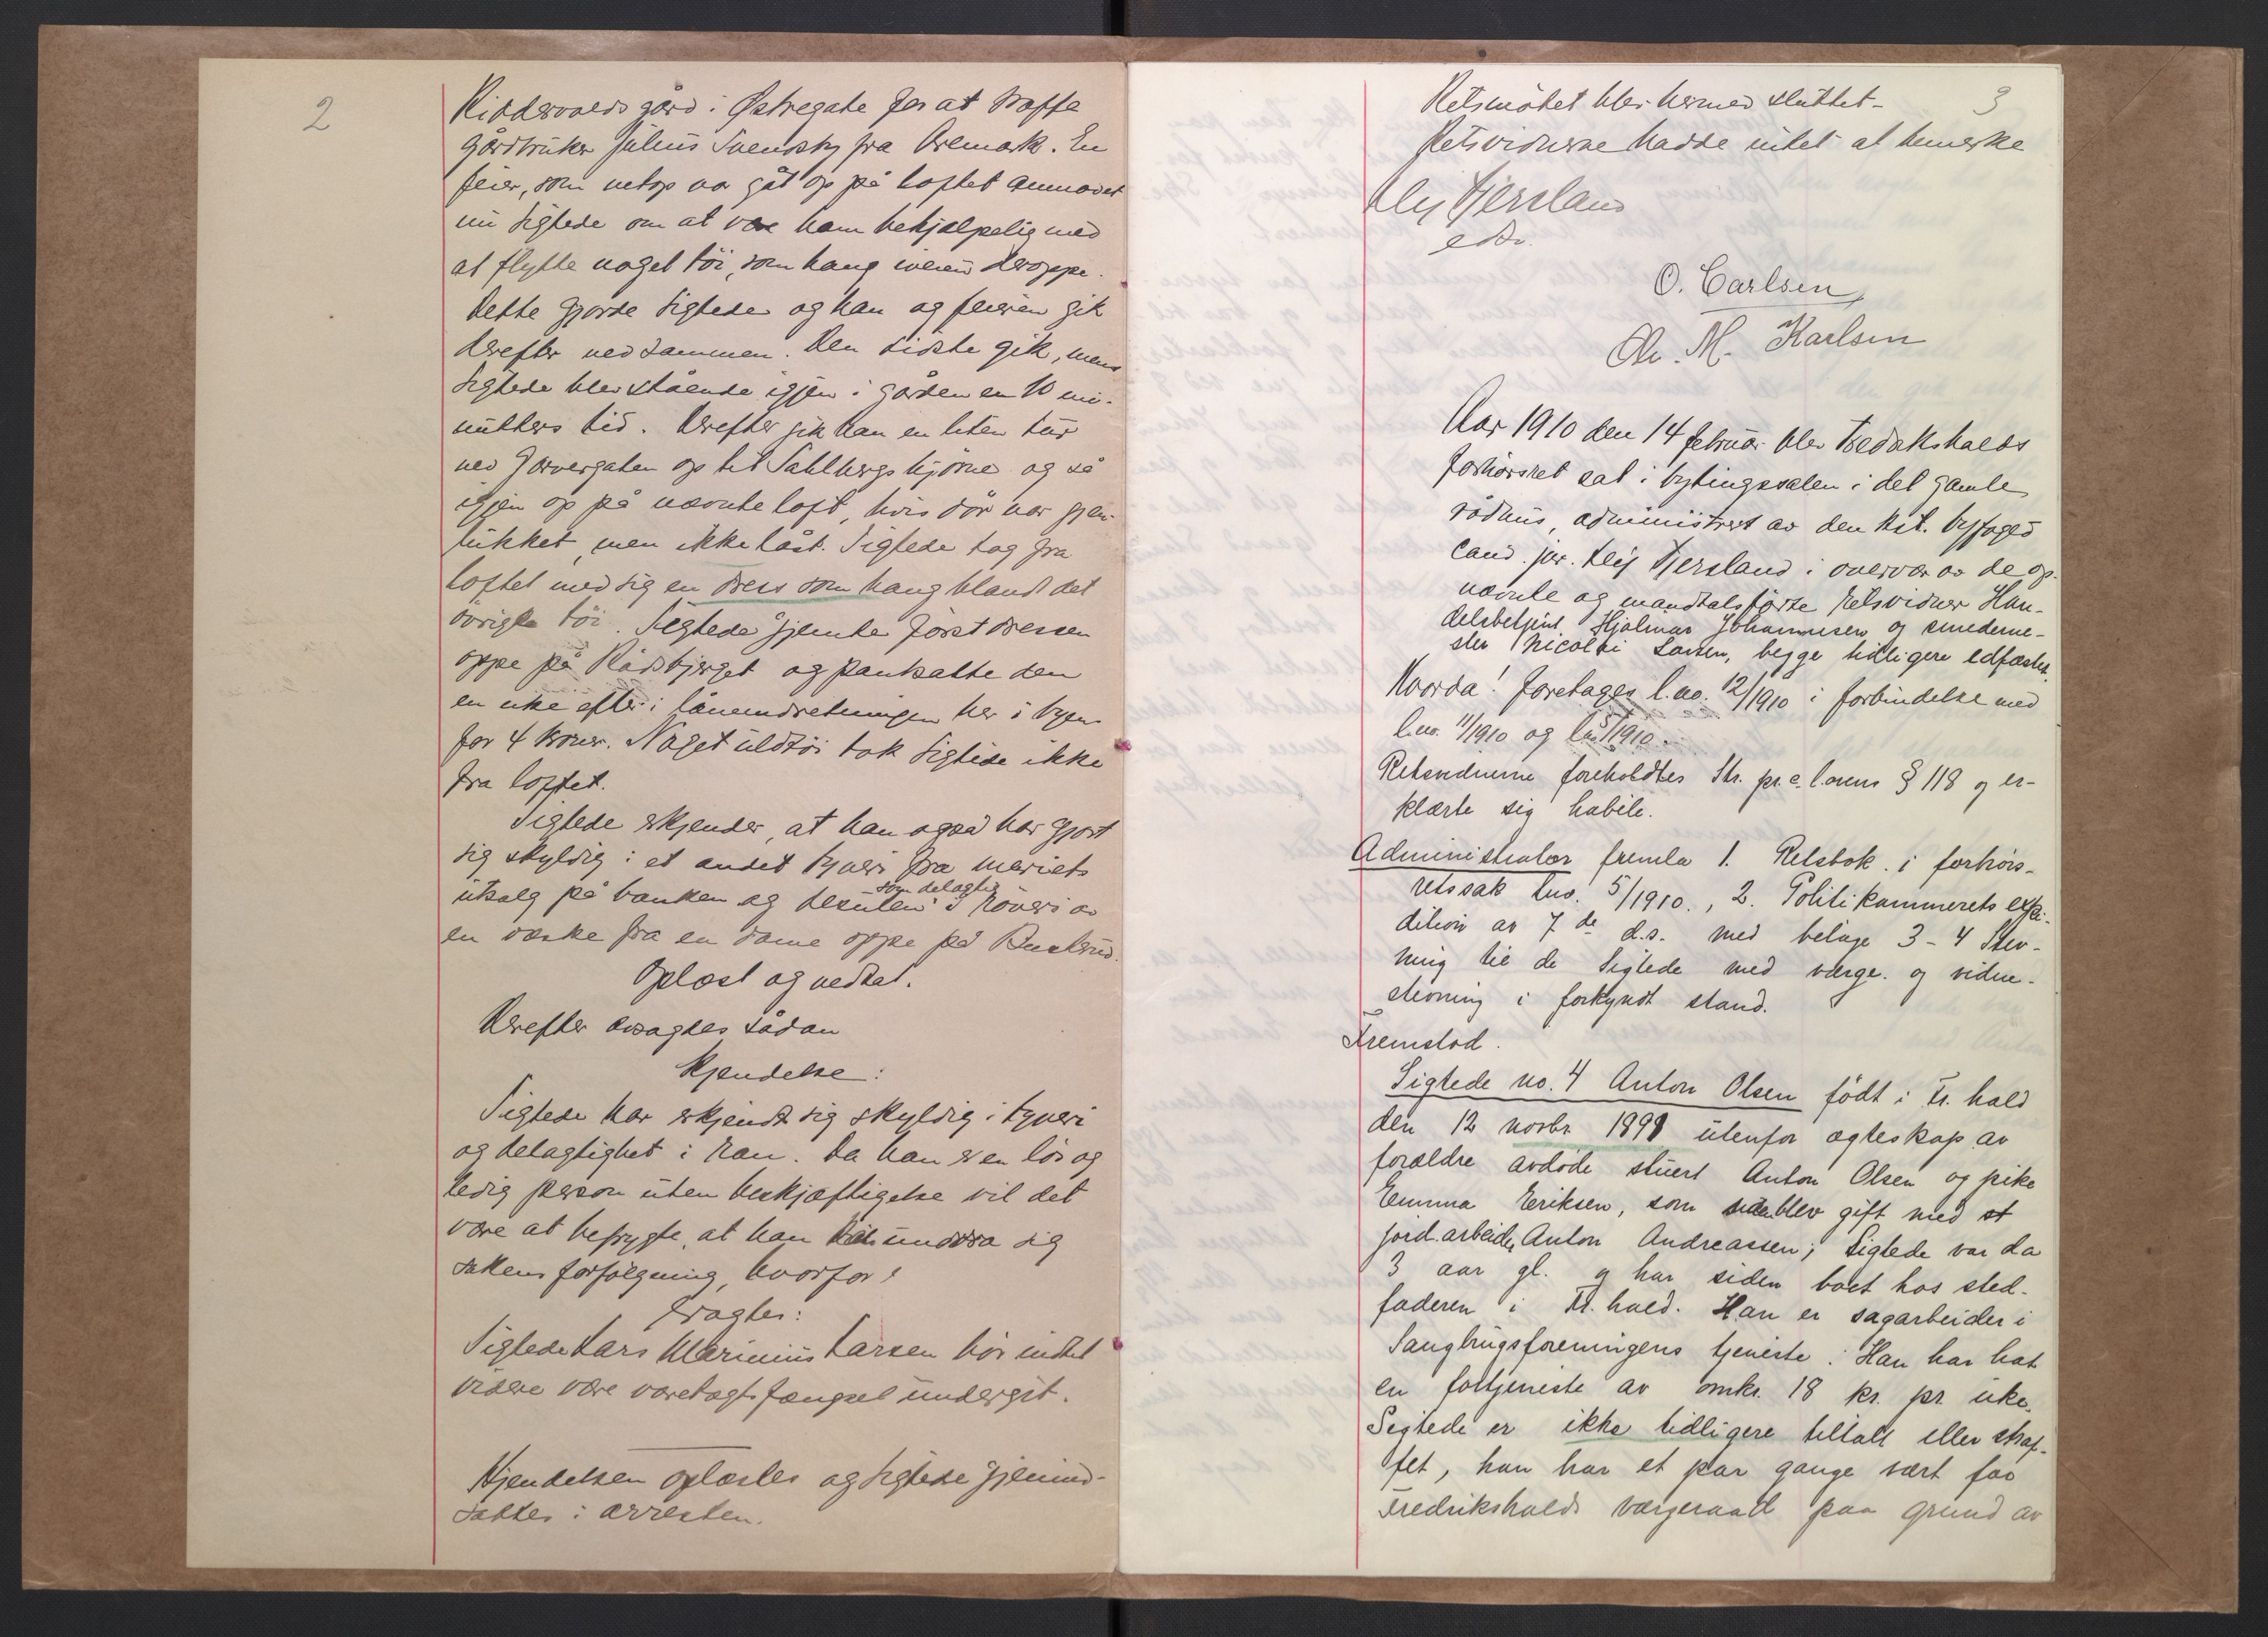 2
Riddervolds gård i Østregate for at træffe
gårdbruker Julius Svendsby fra Aremark. En
feier, som netop var gåt op på loftet anmodet
nu sigtede om at være ham behjælpelig med
at flytte noget töi, som hang iveien deroppe.
Dette gjorde sigtede og han og feieren gik
derefter ned sammen. Den sidste gik, mens
sigtede blev stående igjen i gården en 10 mi-
nutters tid. Derefter gik han en liten tur
ned Garvergaten op til Sahlbergs hjörne og så
igjen op på nævnte loft, hvis dör var gjen-
lukket, men ikke låst. Sigtede tog fra
loftet med sig en dress som hang blandt det
övrigte töi. Sigtede gjemte först dressen
oppe på Rödsbjerget og pantsatte den
en uke efter i låneindretningen her i byen
for 4 kroner. Noget uldtöi tok sigtede ikke
fra loftet.
Sigtede erkjender, at han også har gjort
sig skyldig i et andet tyveri fra meriets
utsalg på banken og desuten som delagtig i röveri av
en væske fra en dame oppe på Buskrud.
Oplæst og vedtat.
Derefter avsagdes sådan
Kjendelse:
Sigtede har erkjendt sig skyldig i tyveri
og delagtighet i ran. Da han er en lös og
ledig person uten beskjæftigelse vil det
være at befrygte, at han vil unddra sig
sakens forfölgning, hvorfor!
Eragtes:
Sigtede Lars Marinius Larsen bör indtil
videre være varetægtsfængsel undergit.
Kjendelsen oplæstes og sigtede gjenind-
sattes i arresten.
3
Retsmötet blev hermed sluttet-
Retsvidnerne hadde intet at bemerke
Gjersland
edv.
O. Carlsen
Chr. M. Karlsen
Aar 1910 den 14 februar blev Fredrikshalds
forhörsret sat i bytingssalen i det gamle
rådhus, administrert av den kst. byfoged
cand. jur. Gjersland i overvær av de op-
nævnte og mandtalsförte retsvidner Han-
delsbetjent Hjalmar Johannesen og smedeme-
ster Nicolai Larsen, begge tidligere edfæstet.
Hvorda! foretages l.no. 12/1910 i forbindelse med
l.no. 11/1910 og l.no. 5/1910.
Retsvidnerne foreholdtes Str. pr.c. lovens § 118 og er-
klærte sig habile.
Administrator fremla 1. Retsbok i forhörs-
retssak Lno. 5/1910., 2. Politikammerets expe-
dition av 7de d.s. med bilage 3-4 Stev-
ning til de sigtede med værge og vidne-
stevning i forkyndt stand.
Fremstod.
Sigtede no. 4 Anton Olsen födt i Fr. hald
den 12 novbr 1898 utenfor ægteskap av
forældre avdöde stuert Anton Olsen og pike
Emma Eriksen, som siden blev gift med
jord.arbeider Anton Andreassen; Sigtede var da
3 aar gl. og har siden boet hos sted-
faderen i Fr. hald. Han er sagarbeider i
Saugbrugsforeningens tjeneste. Han har hat
en fortjeneste av omkr. 18 kr. pr uke.
Sigtede er ikke tidligere tiltalt eller straf-
fet, han har et par gange vært for
Fredrikshalds værgeraad paa grund av